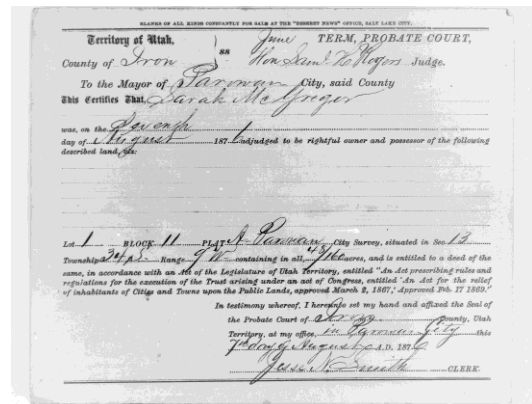 BLANKS OF ALL KINDS CONSTANTLY FOR SALE AT THE "DESERET NEWS" OFFICE, SALT LAKE CITY.
Territory of Utah, } ss June TERM, PROBATE COURT,
County of Iron Hon Saml. H Rogers Judge.
To the Mayor of Parowan City, said County
This Certifies That, Sarah McGregor
was, on the Seventh
day of August 1876 adjudged to be rightful owner and possessor of the following
described land, viz:
Lot 1 BLOCK 11 PLAT A Parowan City Survey, situated in Sec 13
Township 34 S. Range 9 W containing in all, acres, and is entitled to a deed of the
same, in accordance with an Act of the Legislature of Utah Territory, entitled "An Act prescribing rules and
regulations for the execution of the Trust arising under an act of Congress, entitled 'An Act for the relief
of inhabitants of Cities and Towns upon the Public Lands, approved March 2, 1867,' Approved Feb 17 1869."
In testimony whereof, I hereunto set my hand and affixed the Seal of
the Probate Court of Iron County, Utah
Territory, at my office, in Parowan City this
7th day of August A.D. 1876
Jesse N. Smith CLERK.